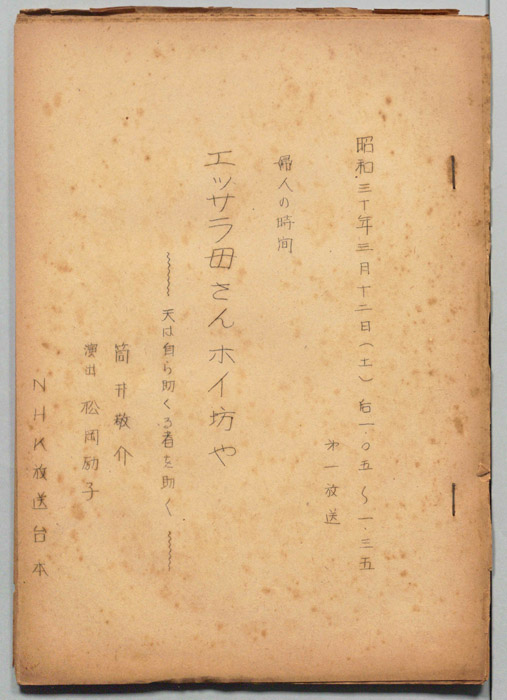 昭和三十年三月十二日(土)后一.〇五〜一.三五
第一放送
婦人の時間
エッサラ母さんホイ坊や
天は自ら助くる者を助く
筒井敬介
演出 松岡励子
NHK放送台本